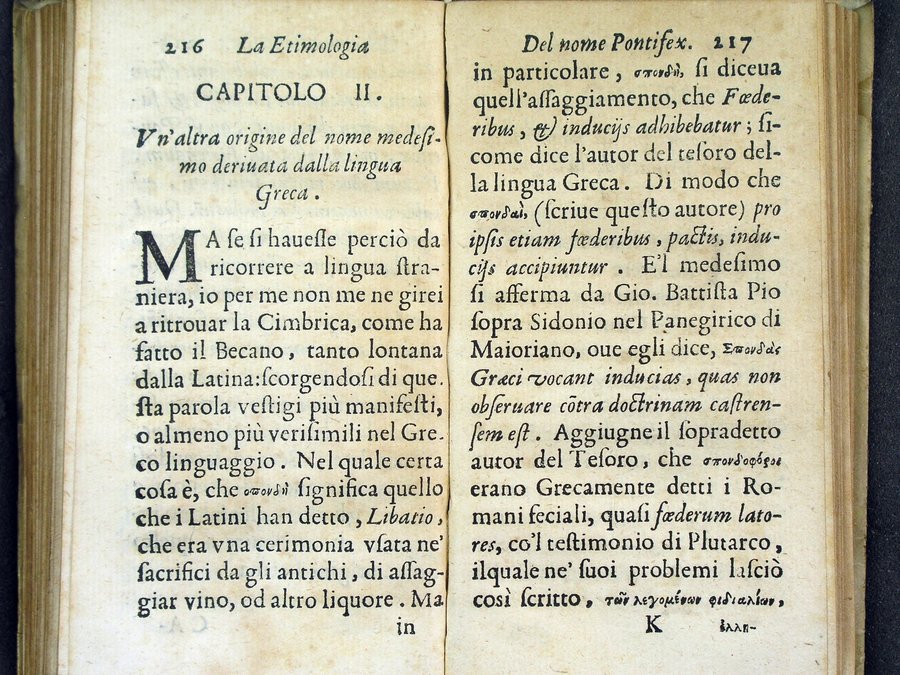 216 La Etimologia
CAPITOLO II.
Vn'altra origine del nome medeſi-
mo deriuata dalla lingua
Greca.
MA ſe ſi haueſſe perciò da
ricorrere a lingua ſtra-
niera, io per me non me ne girei
a ritrouar la Cimbrica, come ha
fatto il Becano, tanto lontana
dalla Latina: ſcorgendoſi di que.
ſta parola veſtigi più manifeſti,
o almeno più veriſimili nel Gre-
co linguaggio. Nel quale certa
coſa è, che σπονδὴ ſignifica quello
che i Latini han detto, Libatio,
che era vna cerimonia vſata ne'
ſacrifici da gli antichi, di aſſag-
giar vino, od altro liquore. Ma
in
Del nome Pontifex. 217
in particolare, σπονδὴ, ſi diceua
quell'aſſaggiamento, che Fœde-
ribus, & inducijs adhibebatur; ſi-
come dice l'autor del teſoro del-
la lingua Greca. Di modo che
σπονδαὶ, (ſcriue queſto autore) pro
ipſis etiam fœderibus, pactis, indu-
cijs accipiuntur. E'l medeſimo
ſi afferma da Gio. Battiſta Pio
ſopra Sidonio nel Panegirico di
Maioriano, oue egli dice, Σπονδὰς
Græci vocant inducias, quas non
obſeruare cõtra doctrinam caſtren-
ſem eſt. Aggiugne il ſopradetto
autor del Teſoro, che σπονδοφόροι
erano Grecamente detti i Ro-
mani feciali, quaſi fœderum lato-
res, co'l teſtimonio di Plutarco,
ilquale ne' ſuoi problemi laſciò
così ſcritto, τῶν λεγομένων φιδιαλίων,
K ἑλλη-